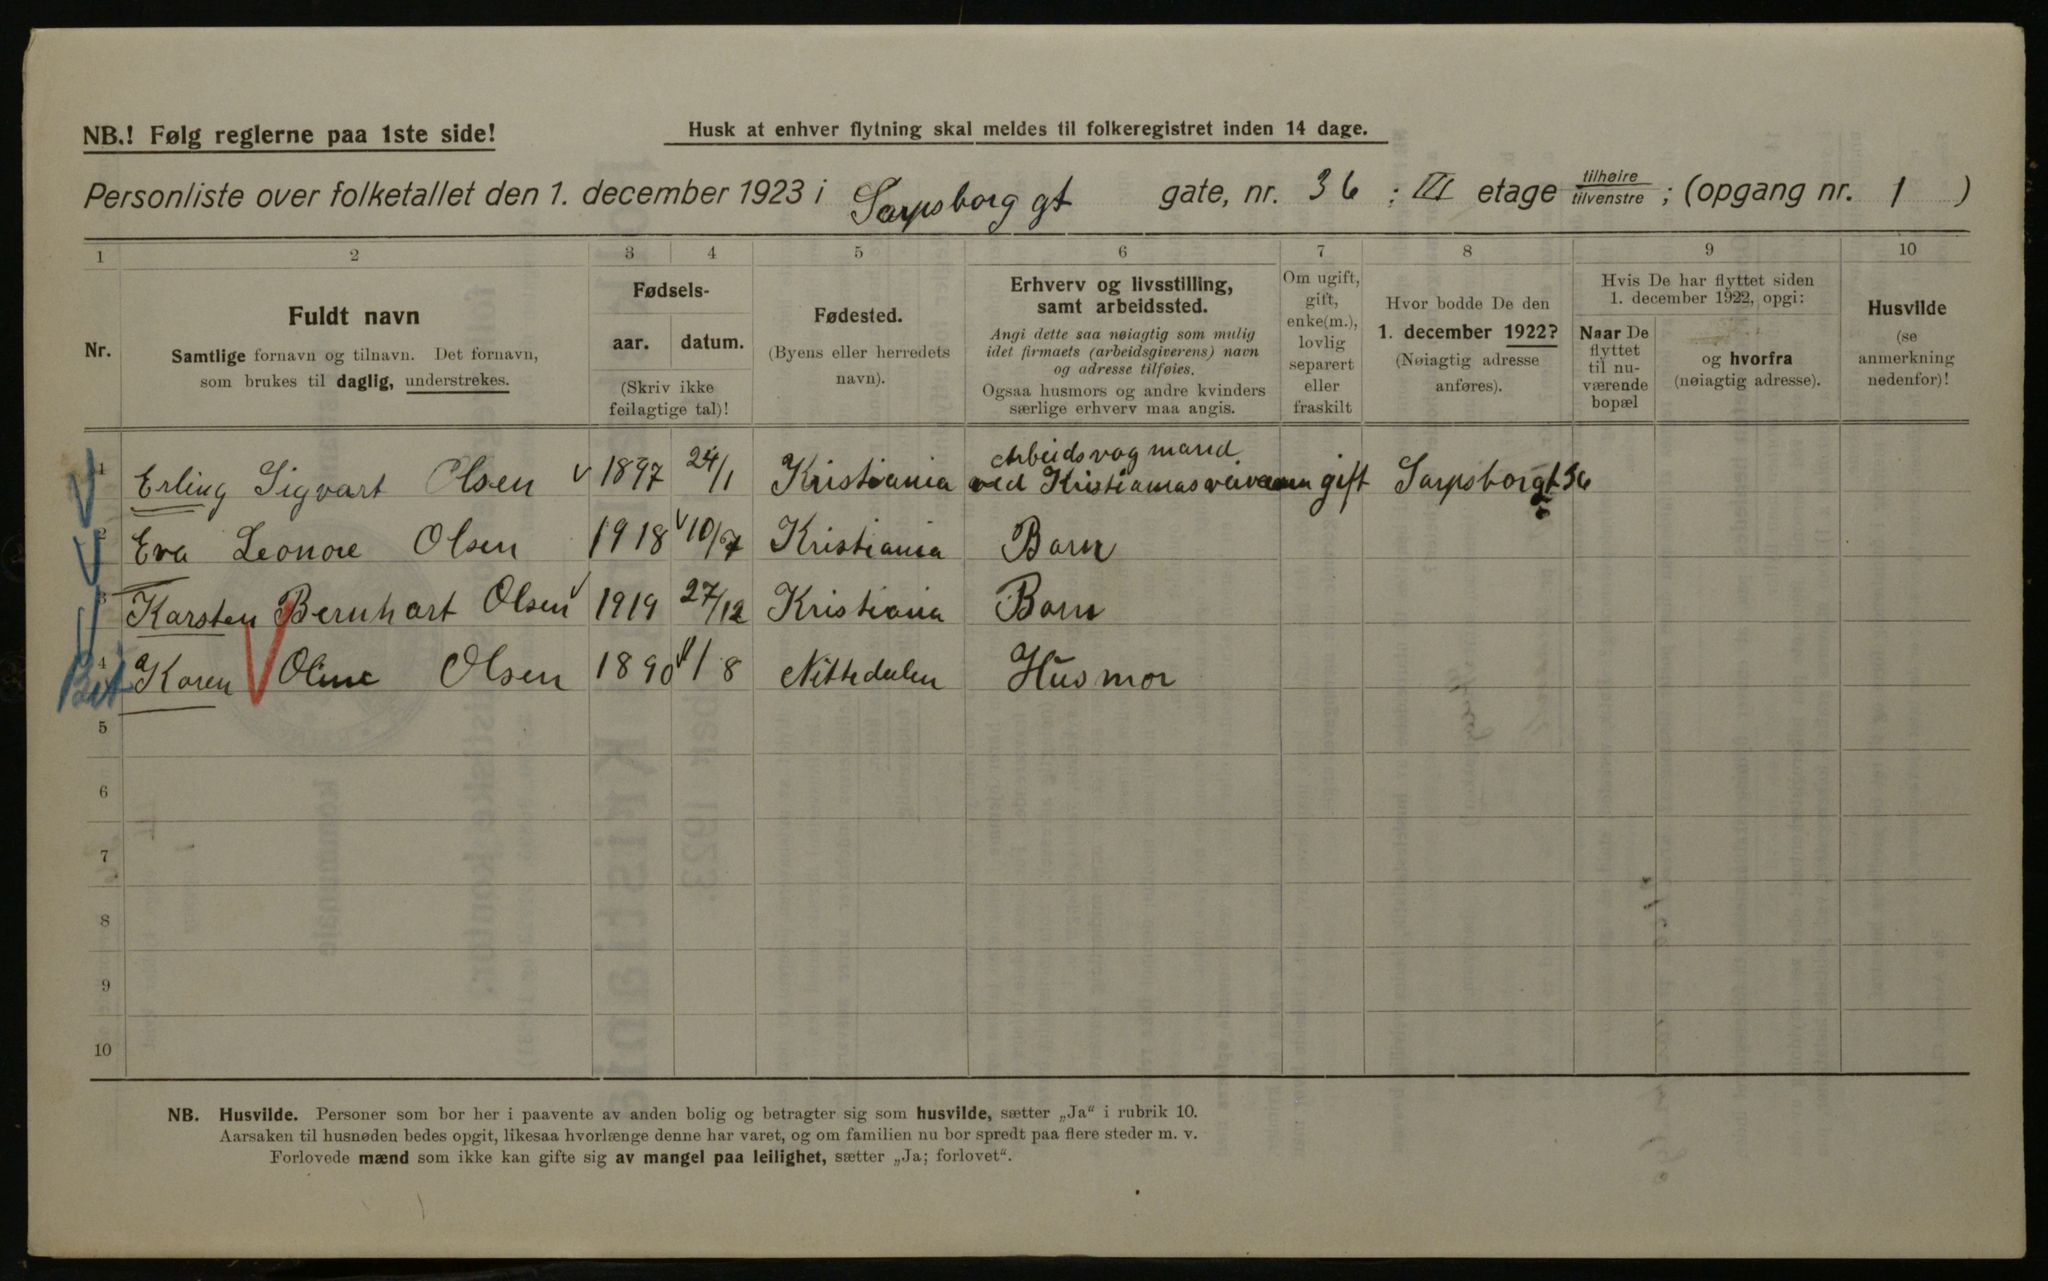 NB.! Følg reglerne paa 1ste side!
Husk at enhver flytning skal meldes til folkeregistret inden 14 dage.
Personliste over folketallet den 1. december 1923 i Sarpsborg gt gate, nr. 36 ; III etage tilhøire/tilvenstre ; (opgang nr. 1 )
1 2 3 4 5 6 7 8 9 10
Nr.
Fuldt navn
Samtlige fornavn og tilnavn. Det fornavn,
som brukes til daglig, understrekes.
Fødsels-
aar. datum.
(Skriv ikke
feilagtige tal)!
Fødested.
(Byens eller herredets
navn).
Erhverv og livsstilling,
samt arbeidssted.
Angi dette saa nøiagtig som mulig
idet firmaets (arbeidsgiverens) navn
og adresse tilføies.
Ogsaa husmors og andre kvinders
særlige erhverv maa angis.
Om ugift,
gift,
enke(m.),
lovlig
separert
eller
fraskilt
Hvor bodde De den
1. december 1922?
(Nøiagtig adresse
anføres).
Hvis De har flyttet siden
1. december 1922, opgi:
Naar De
flyttet
til nu-
værende
bopæl
og hvorfra
(nøiagtig adresse).
Husvilde
(se
anmerkning
nedenfor)!
Arbeidsvogmand
1 Erling Sigvart Olsen 1897 24/1 Kristiania ved Kristianias veivesen gift Sarpsborgt 36
2 Eva Leonore Olsen 1918 10/7 Kristiania Barn
3 Karsten Bernhart Olsen 1919 27/12 Kristiania Barn
4 Karen Oline Olsen 1890 1 8 Nittedalen Husmor
5
6
7
8
9
10
NB. Husvilde. Personer som bor her i paavente av anden bolig og betragter sig som husvilde, sætter „Ja“ i rubrik 10.
Aarsaken til husnøden bedes opgit, likesaa hvorlænge denne har varet, og om familien nu bor spredt paa flere steder m. v.
Forlovede mænd som ikke kan gifte sig av mangel paa leilighet, sætter „Ja; forlovet“.